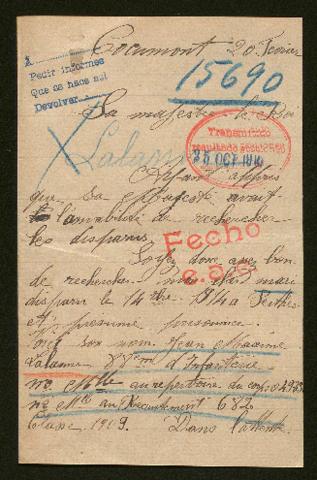 Pedir informes
Que se hace así
Devolver
Cocumont 20 Fevrier
15690
Sa majesté le Roi
Lalanne
Transmitido
resultado
25 OCT 1916
Ayant appris
que Sa Majesté avait
l'amabilité de rechercher
les disparus
Fecho
Soyez donc assez bon
de rechercher mon cher mari
disparu le 14 1914 a
et presume prisonnier.
voici son nom. Jean Maxime
Lalanne 88em d'Infanterie
no Mlle au repertoire du corps 04932
no Mle au Recrutement 682
Classe 1909. Dans l'attente